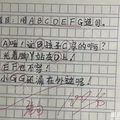 用ABCDEFG造句。
A呀！这B孩子C哭的呀？
光着脚丫站在D上！
E下也不穿！
小GG还露在外边呢！